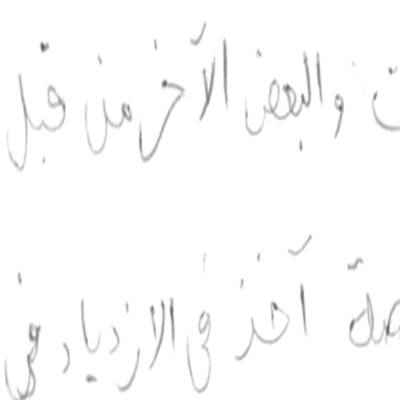 والبعض الآخر من قبل
آخذ في الازدياد في